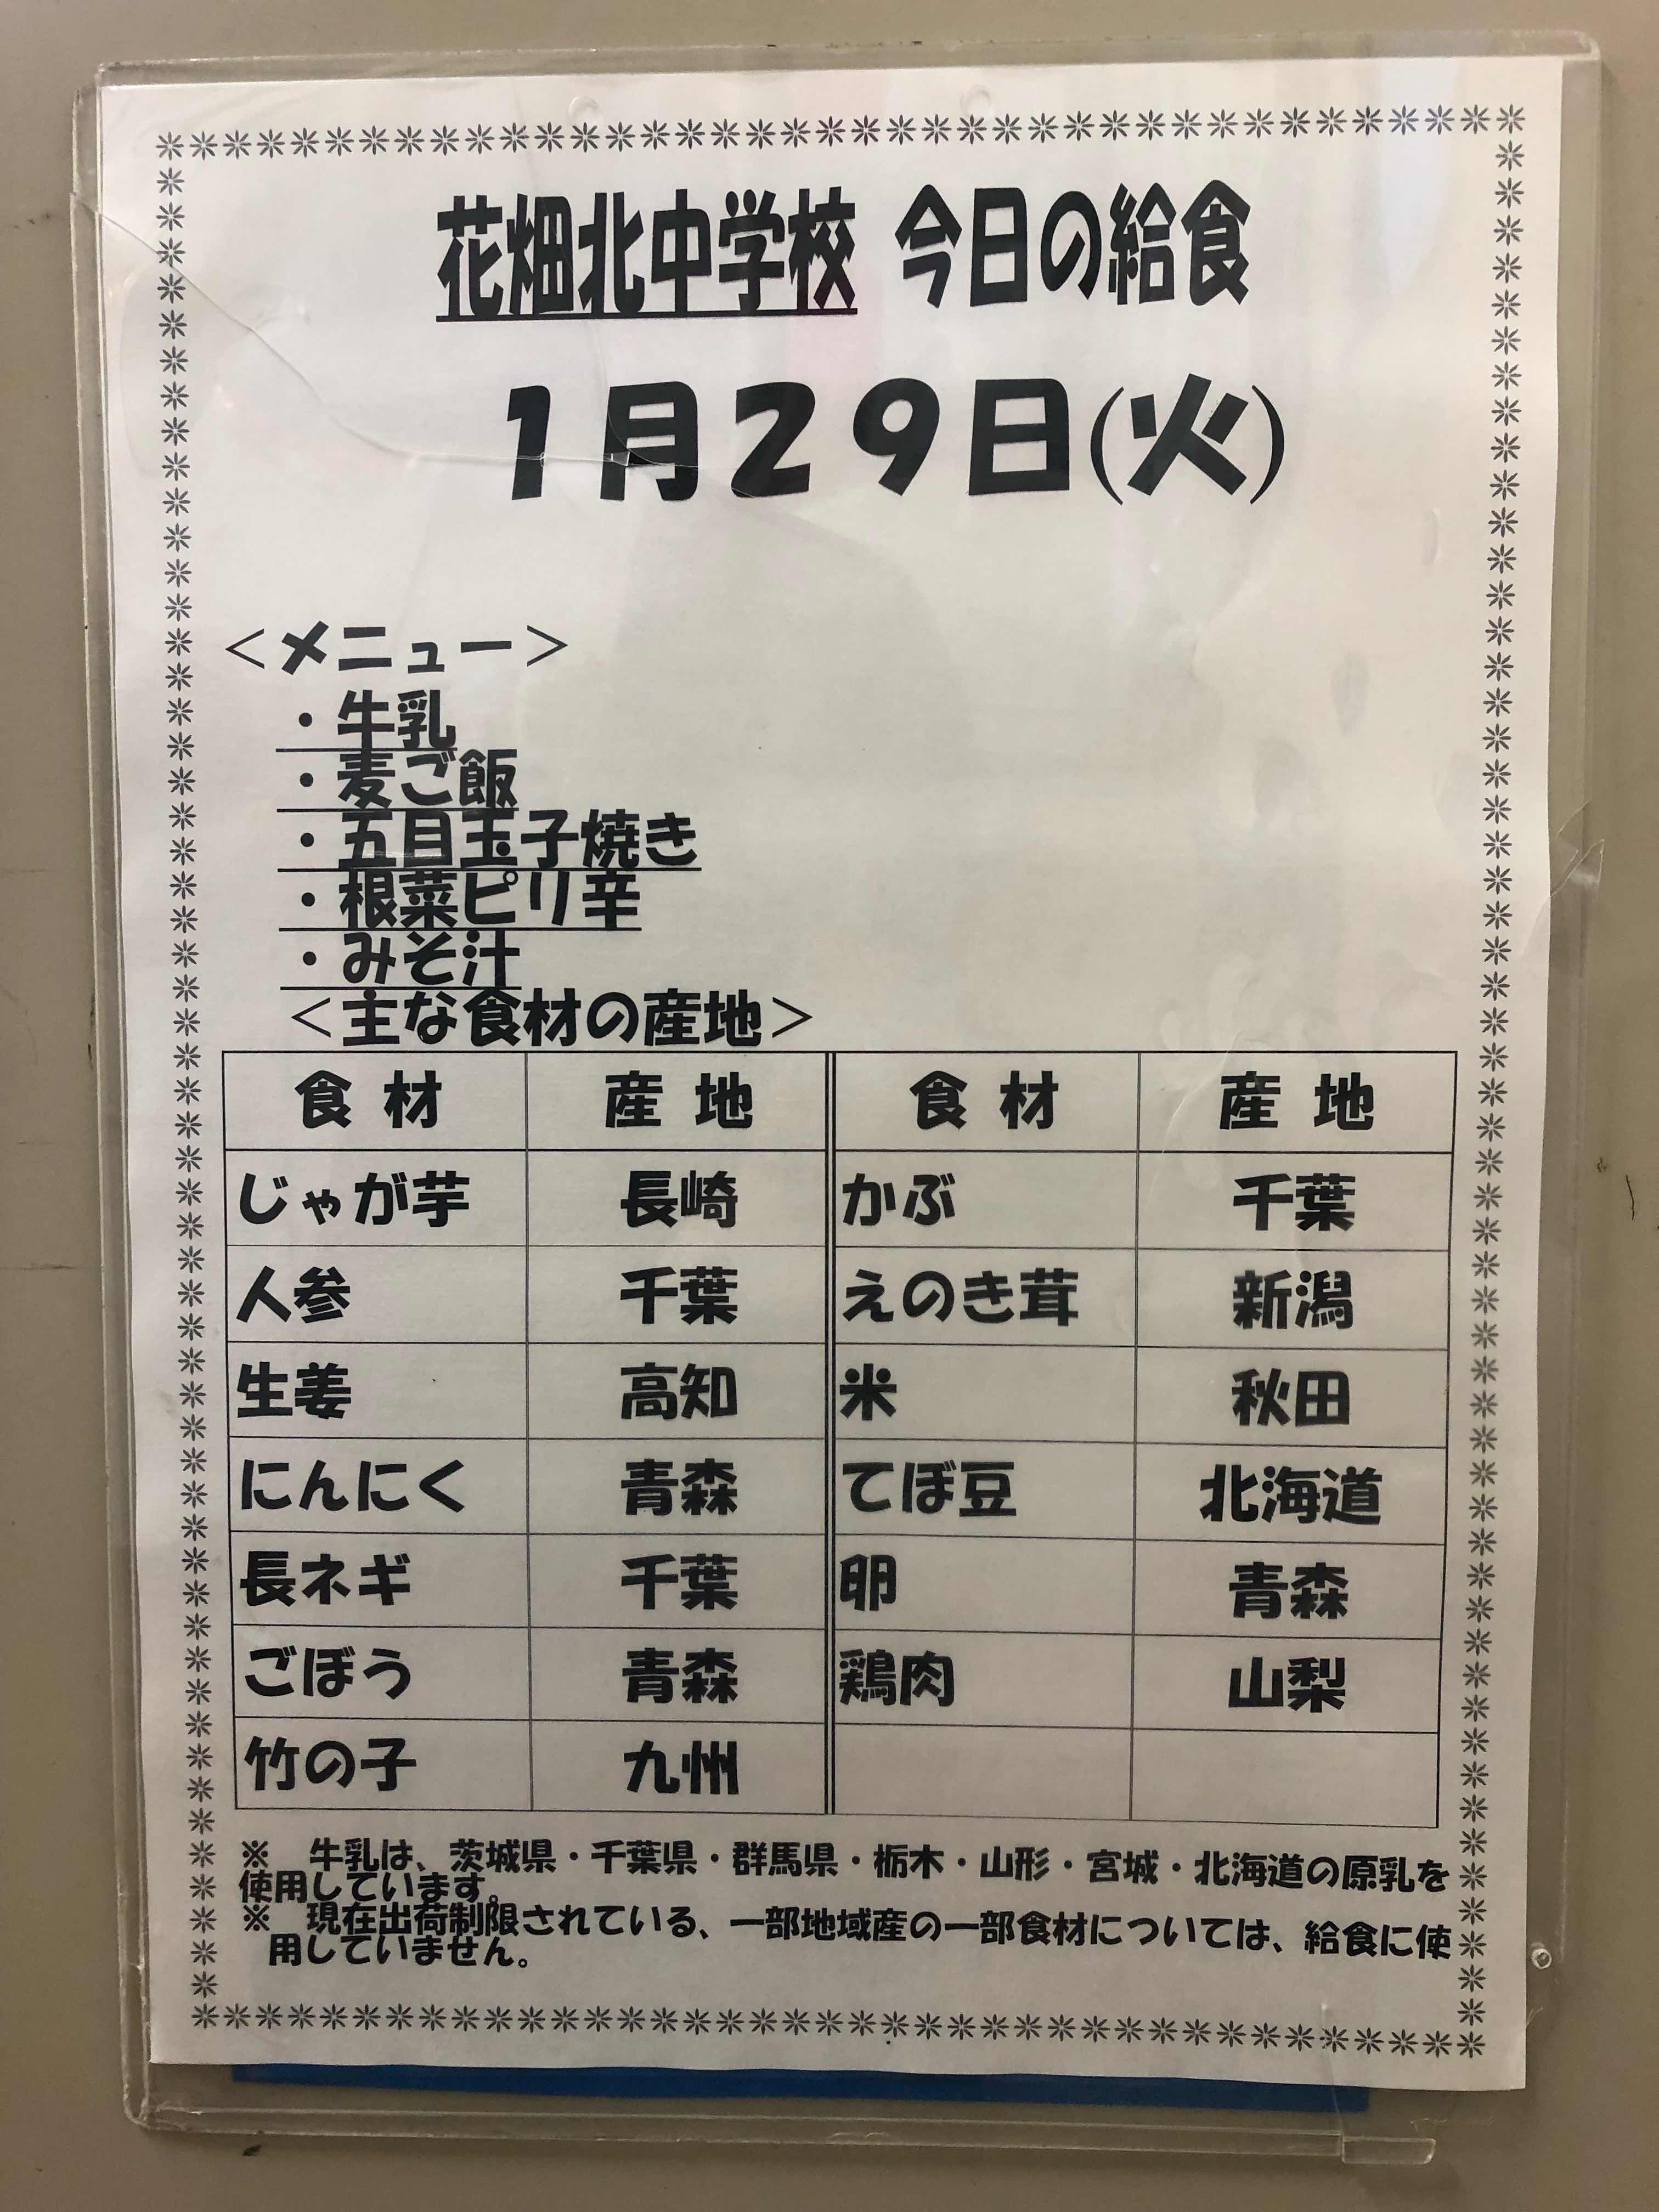 花畑北中学校 今日の給食
1月29日(火)
＜メニュー＞
・牛乳
・麦ご飯
・五目玉子焼き
・根菜ピリ辛
・みそ汁
＜主な食材の産地＞
食 材 産 地 食 材 産 地
じゃが芋 長崎 かぶ 千葉
人参 千葉 えのき茸 新潟
生姜 高知 米 秋田
にんにく 青森 てぼ豆 北海道
長ネギ 千葉 卵 青森
ごぼう 青森 鶏肉 山梨
竹の子 九州
※ 牛乳は、茨城県・千葉県・群馬県・栃木・山形・宮城・北海道の原乳を
使用しています。
※ 現在出荷制限されている、一部地域産の一部食材については、給食に使
用していません。